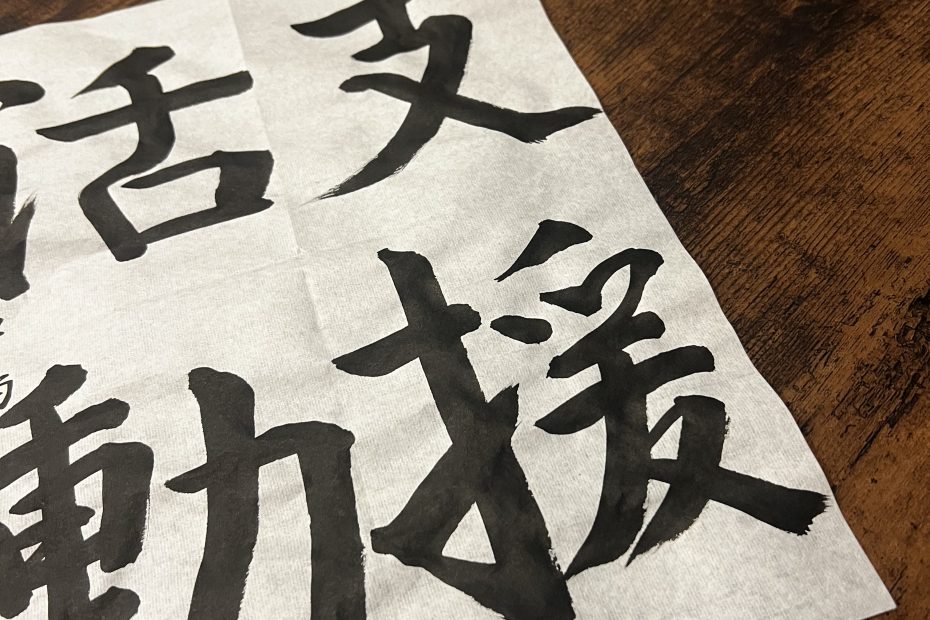 支援
活動